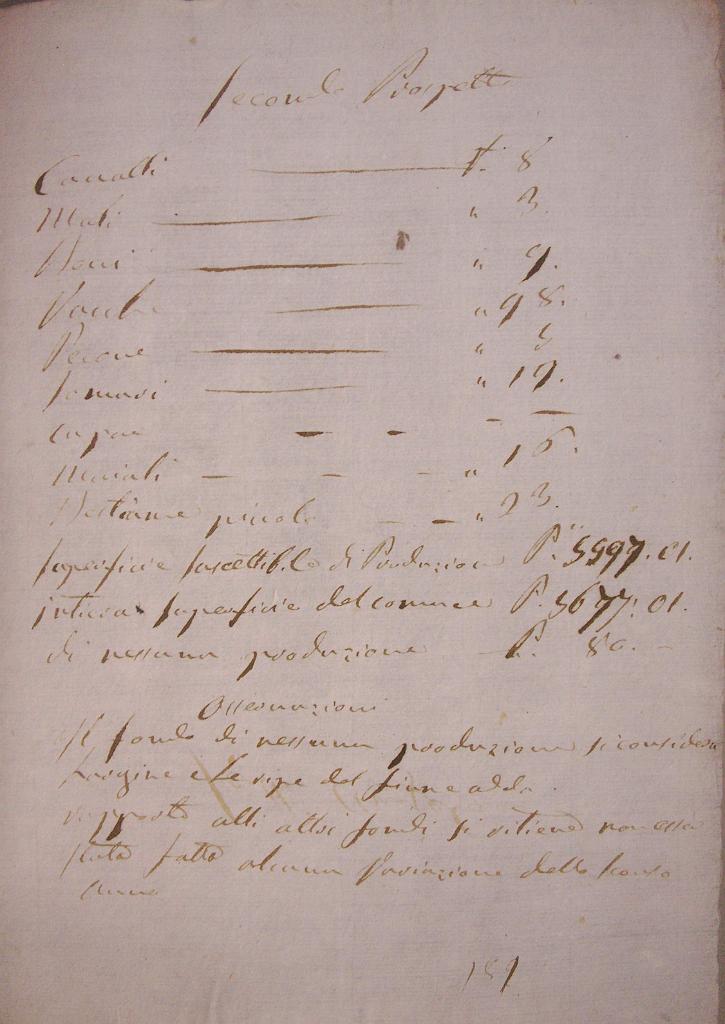 Secondo Prospetto
Cavalli N. 8
Muli " 3.
Bovi " 9.
Vacche " 98.
Pecore "
Somari " 19.
capre - - - -
maiali - - - " 16.
Bestiame piccolo - - " 23.
Superficie suscettibile di Produzione P. 5597.01.
intiera superficie del comune P. 5677.01.
di nessuna produzione P. 80. -
Osservazioni
Il fondo di nessuna produzione si considera
l'argine e le ripe del fiume adda.
rapporto alli altri fondi si ritiene non essere
stata fatta alcuna Variazione dello scorso
anno